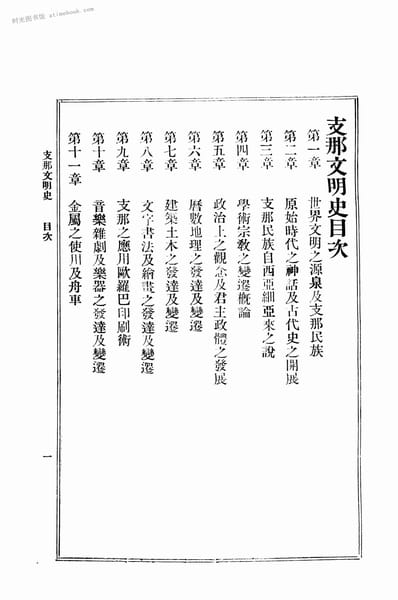 时光图书馆 atimebook.com
支那文明史目次
第一章 世界文明之源泉及支那民族
第二章 原始時代之神話及古代史之開展
第三章 支那民族自西亞細亞來之說
第四章 學術宗敎之變遷槪論
第五章 政治上之觀念及君主政體之發展
第六章 曆數地理之發達及變遷
第七章 建築土木之發達及變遷
第八章 文字書法及繪畫之發達及變遷
第九章 支那之應用歐羅巴印刷術
第十章 音樂雜劇及樂器之發達及變遷
第十一章 金屬之使用及舟車
支那文明史 目次 一